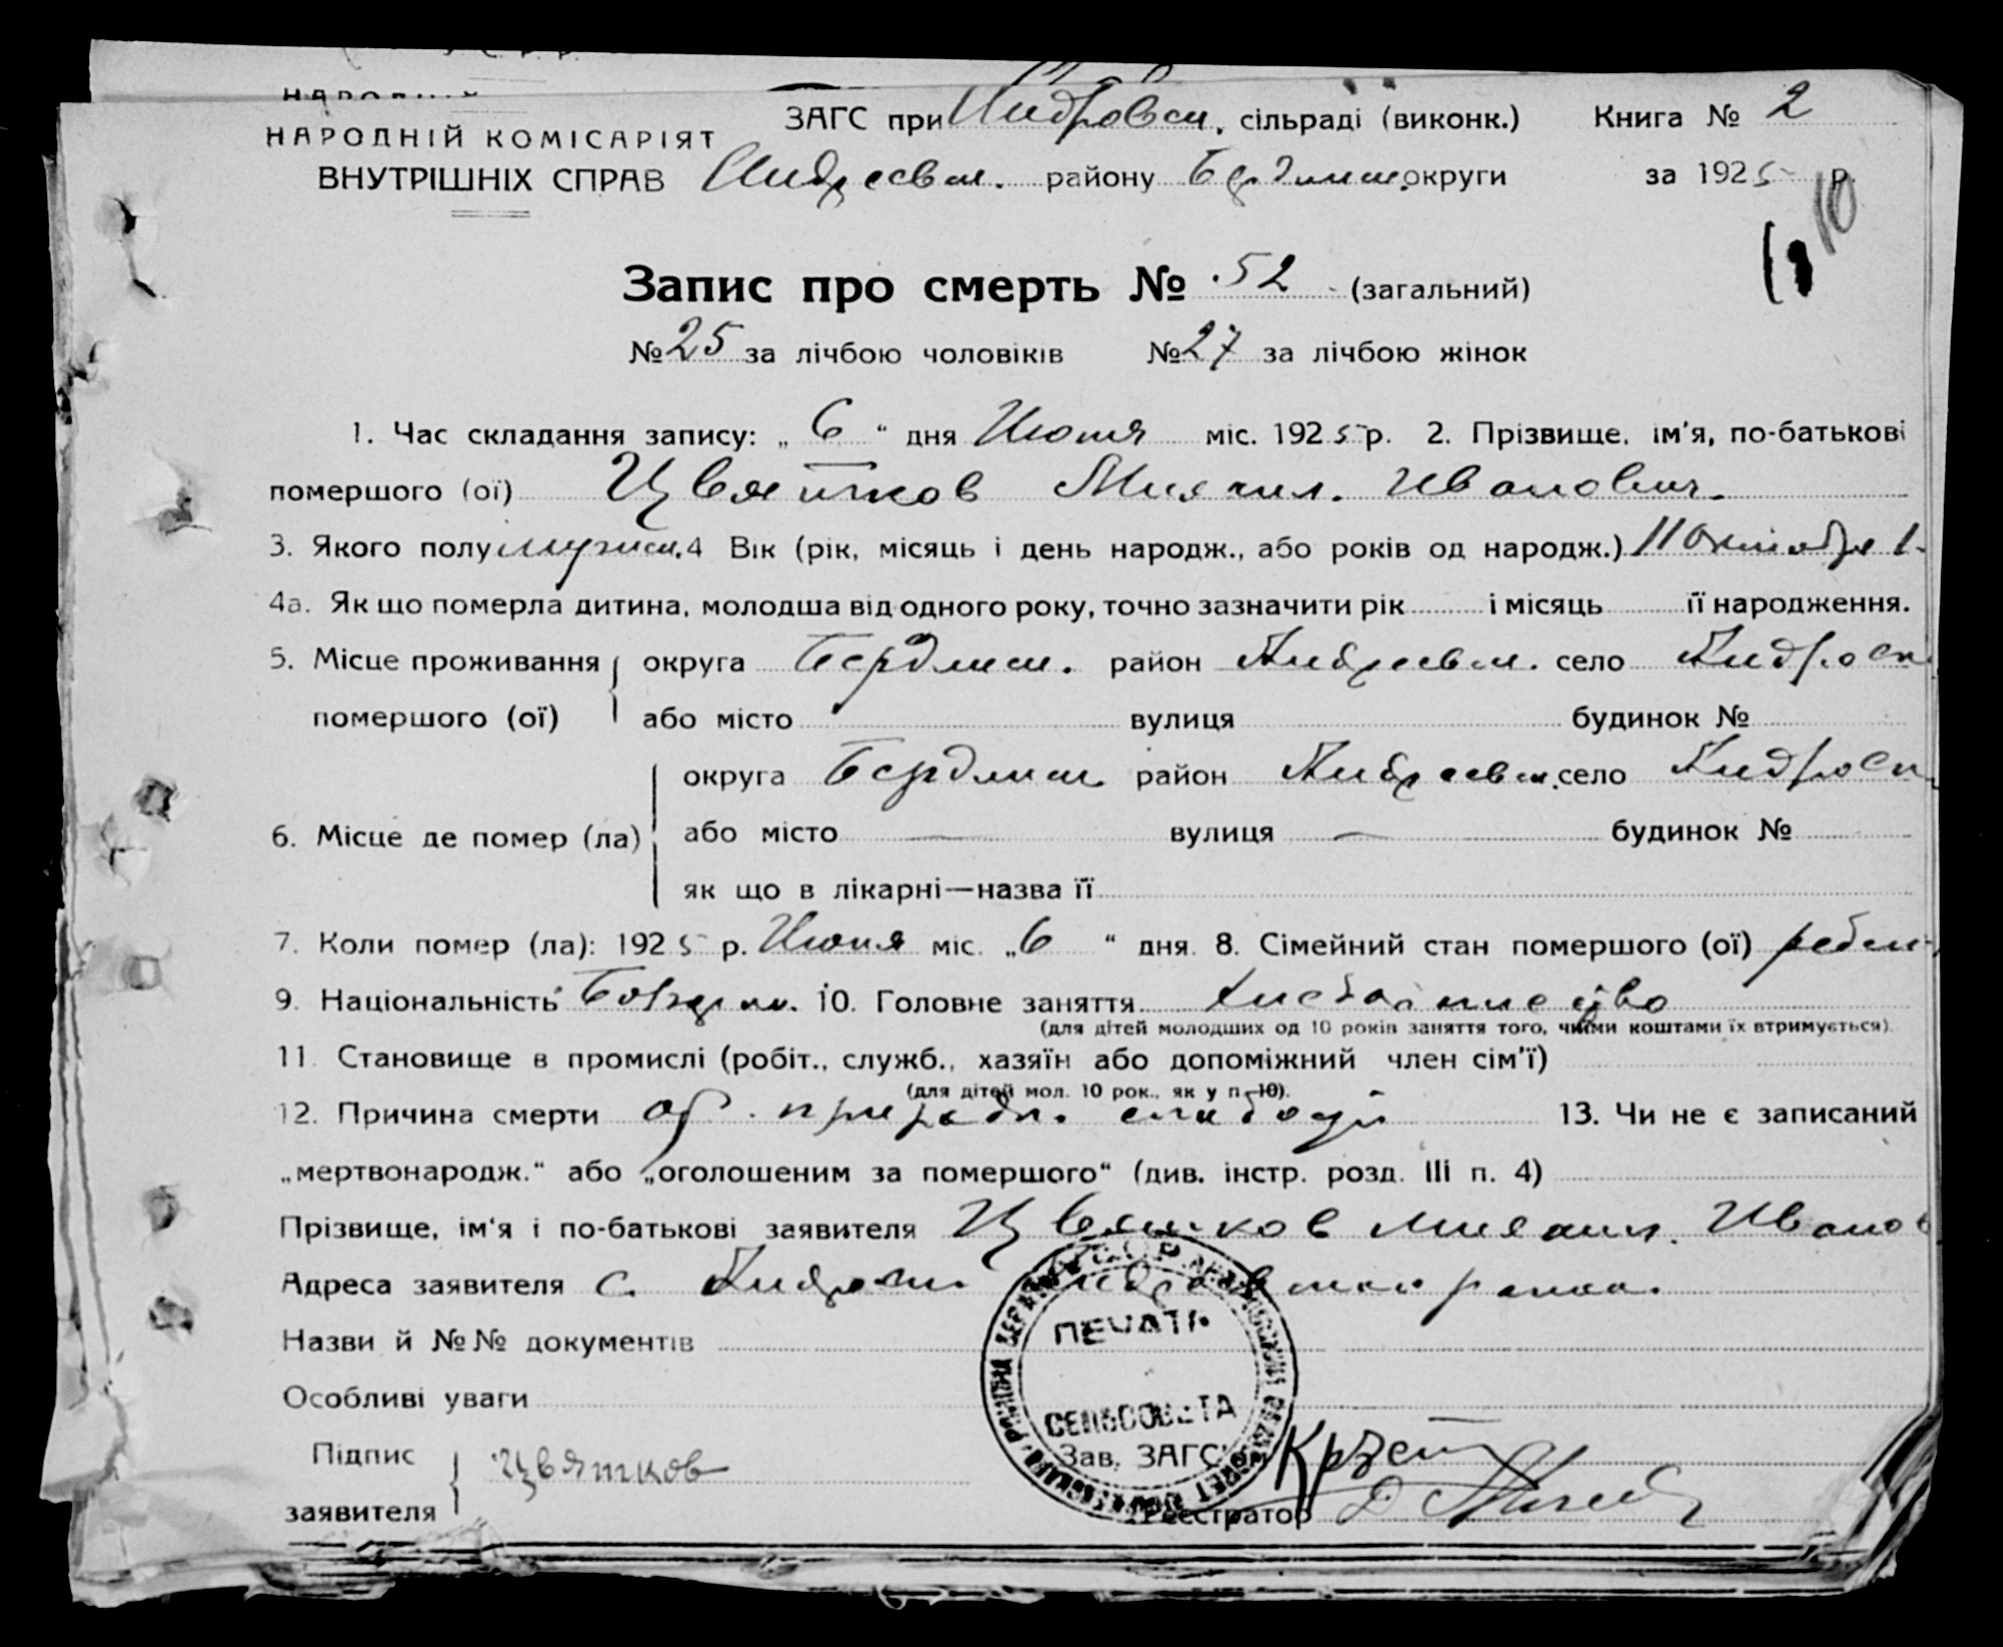 НАРОДНІЙ КОМІСАРІЯТ
ВНУТРІШНІХ СПРАВ
ЗАГС при Андровск. сільраді (виконк.) Книга № 2
Андреевск. району Бердянск. округи за 1925 р.
10
Запис про смерть № 52 (загальний)
№ 25 за лічбою чоловіків № 27 за лічбою жінок
1. Час складання запису: „ 6 “ дня Июня міс. 1925 р. 2. Прізвище, ім'я, по-батькові
помершого (ої) Цвятков Михаил. Иванович.
3. Якого полу мужск. 4 Вік (рік, місяць і день народж., або років од народж.) 11 Октября 1
4а. Як що померла дитина, молодша від одного року, точно зазначити рік і місяць її народження.
5. Місце проживання округа Бердянск. район Андреевск. село Андровк
помершого (ої) або місто вулиця будинок №
округа Бердянск район Андреевск. село Андровк
6. Місце де помер (ла) або місто — вулиця — будинок №
як що в лікарні—назва її
7. Коли помер (ла): 1925 р. Июня міс. „6 “ дня. 8. Сімейний стан помершого (ої) ребен
9. Національність Болгар. 10. Головне заняття хлебопашество
(для дітей молодших од 10 років заняття того, чиїми коштами їх втримується).
11. Становище в промислі (робіт., служб., хазяїн або допоміжний член сім'ї)
(для дітей мол. 10 рок., як у п. 10).
12. Причина смерти от слабости 13. Чи не є записаний
„мертвонародж.“ або „оголошеним за помершого“ (див. інстр. розд. III п. 4)
Прізвище, ім'я і по-батькові заявителя Цвятков Михаил. Иванов
Адреса заявителя с. Андровк района.
ПЕЧАТЬ
Назви й №№ документів
Особливі уваги
СЕЛЬСОВЕТА
Підпис Цвятков Зав. ЗАГС'ом
заявителя Реєстратор